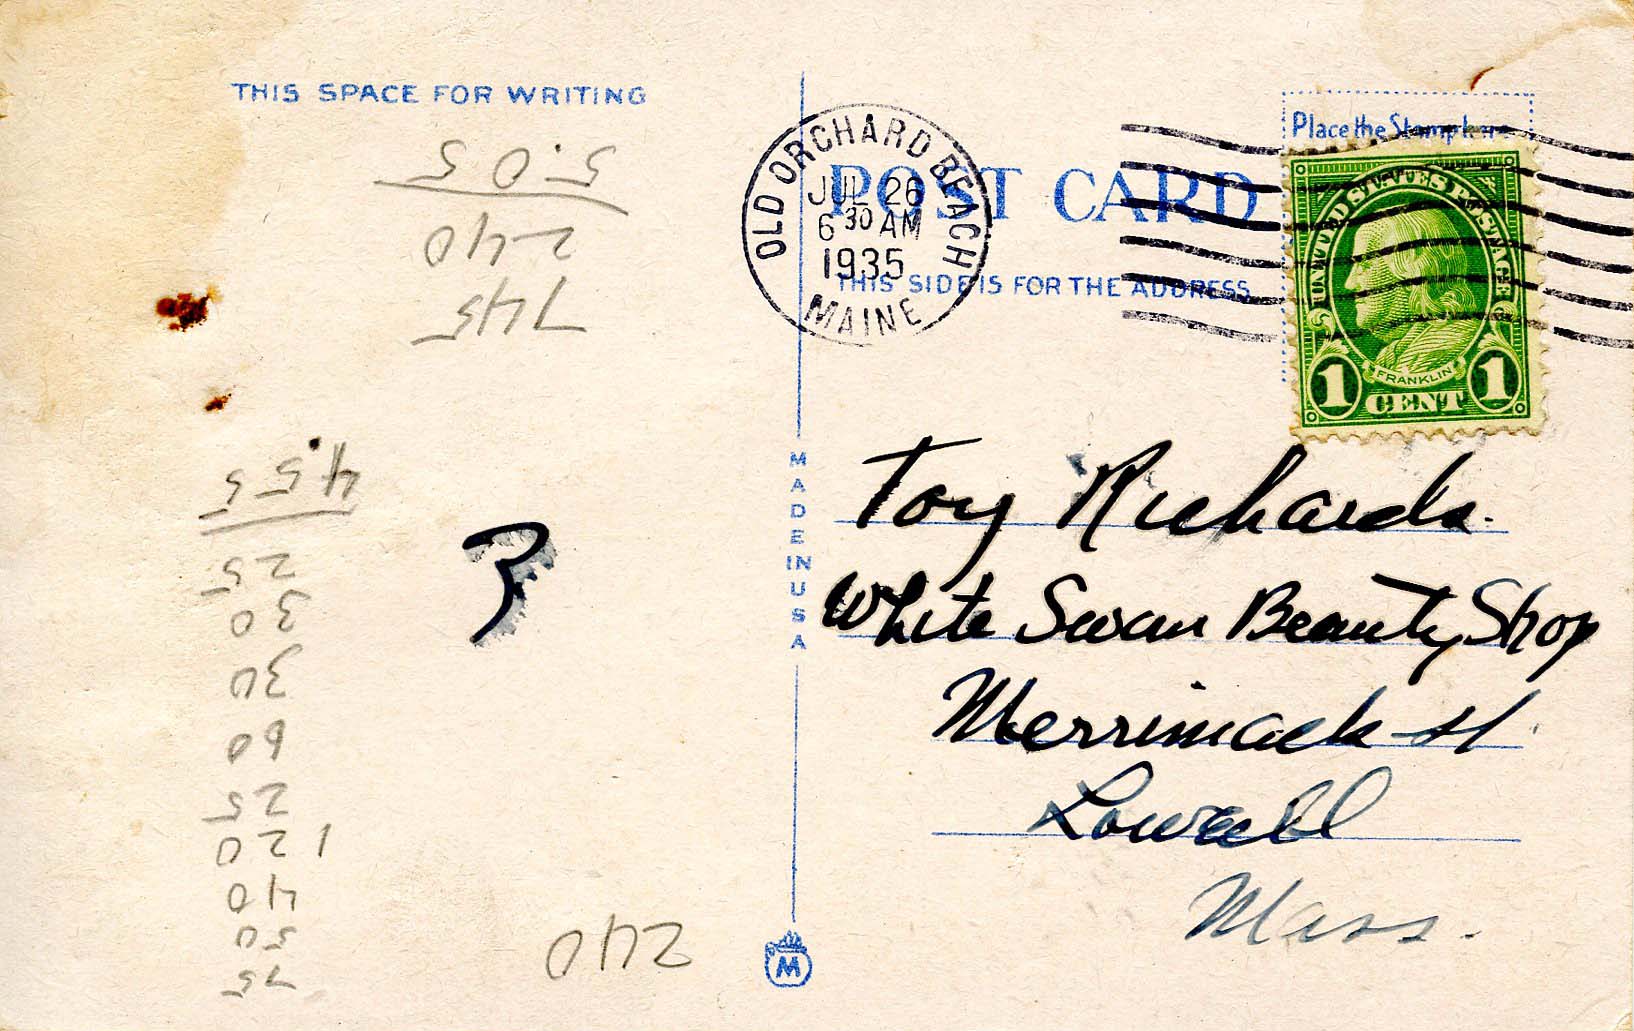 THIS SPACE FOR WRITING
745
240
5.05
75
50
40
120
25
60
30
30
25
4.55
3
240
OLD ORCHARD BEACH
JUL 26
6 30 AM
1935
MAINE
POST CARD
THIS SIDE IS FOR THE ADDRESS
Place the Stamp here
UNITED STATES POSTAGE
FRANKLIN
1 CENT 1
MADE IN USA
M
Toy Richards.
White Swan Beauty Shop
Merrimack st.
Lowell
Mass.